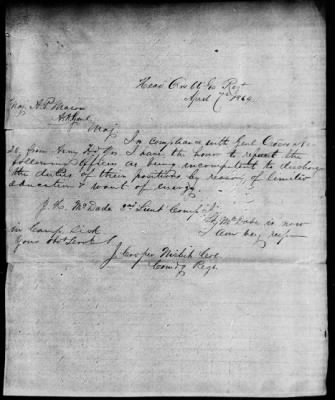 Head Qrs Regt
April 7th 1864
Maj A. P. Mason
A A Genl
Maj
In compliance with Genl Orders No
from Army Hd Qrs I have the honor to report the
following officers as being incompetent to discharge
the duties of their positions by reason of limited
education & want of energy.
J. H. McDade 2nd Lieut Comp
McDade is now
in Camp
Your Obt Servt
J. Cooper Nisbet Col
Comdg Regt